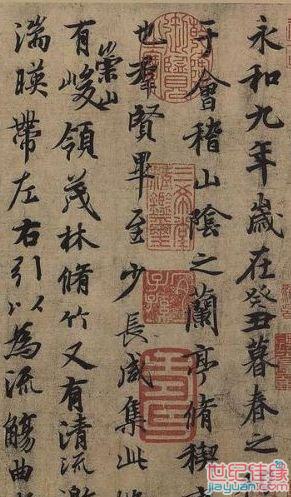 永和九年歲在癸丑暮春之
于會稽山陰之蘭亭脩禊
也羣賢畢至少長咸集此
有崇山峻領茂林脩竹又有清流
湍暎帶左右引以為流觴曲
世纪佳缘
jiayuan.com